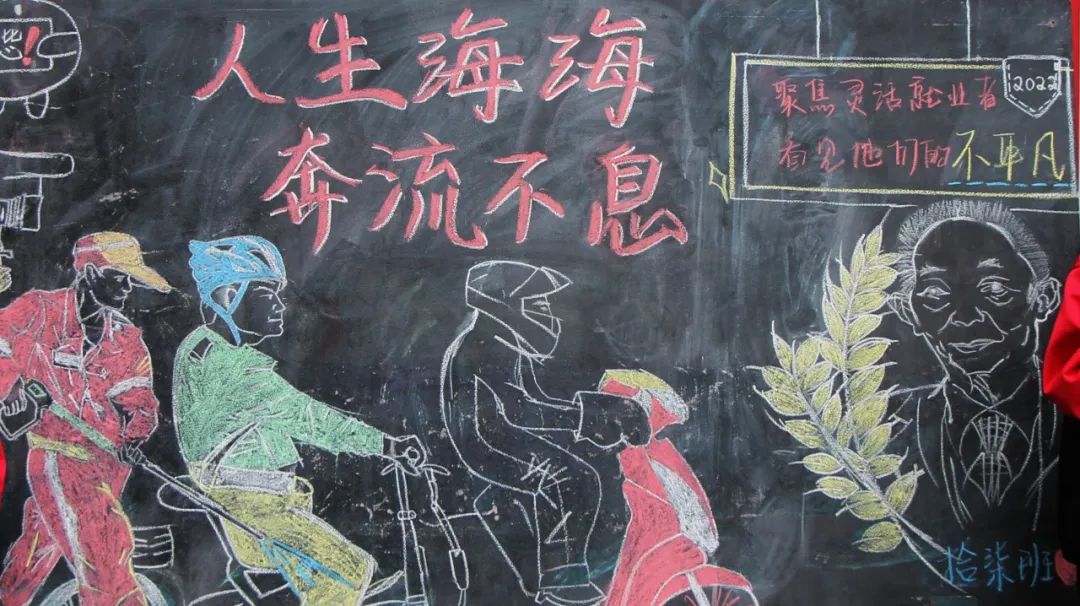 人生海海
奔流不息
2022
聚焦灵活就业者
看见他们的不平凡
拾柒班